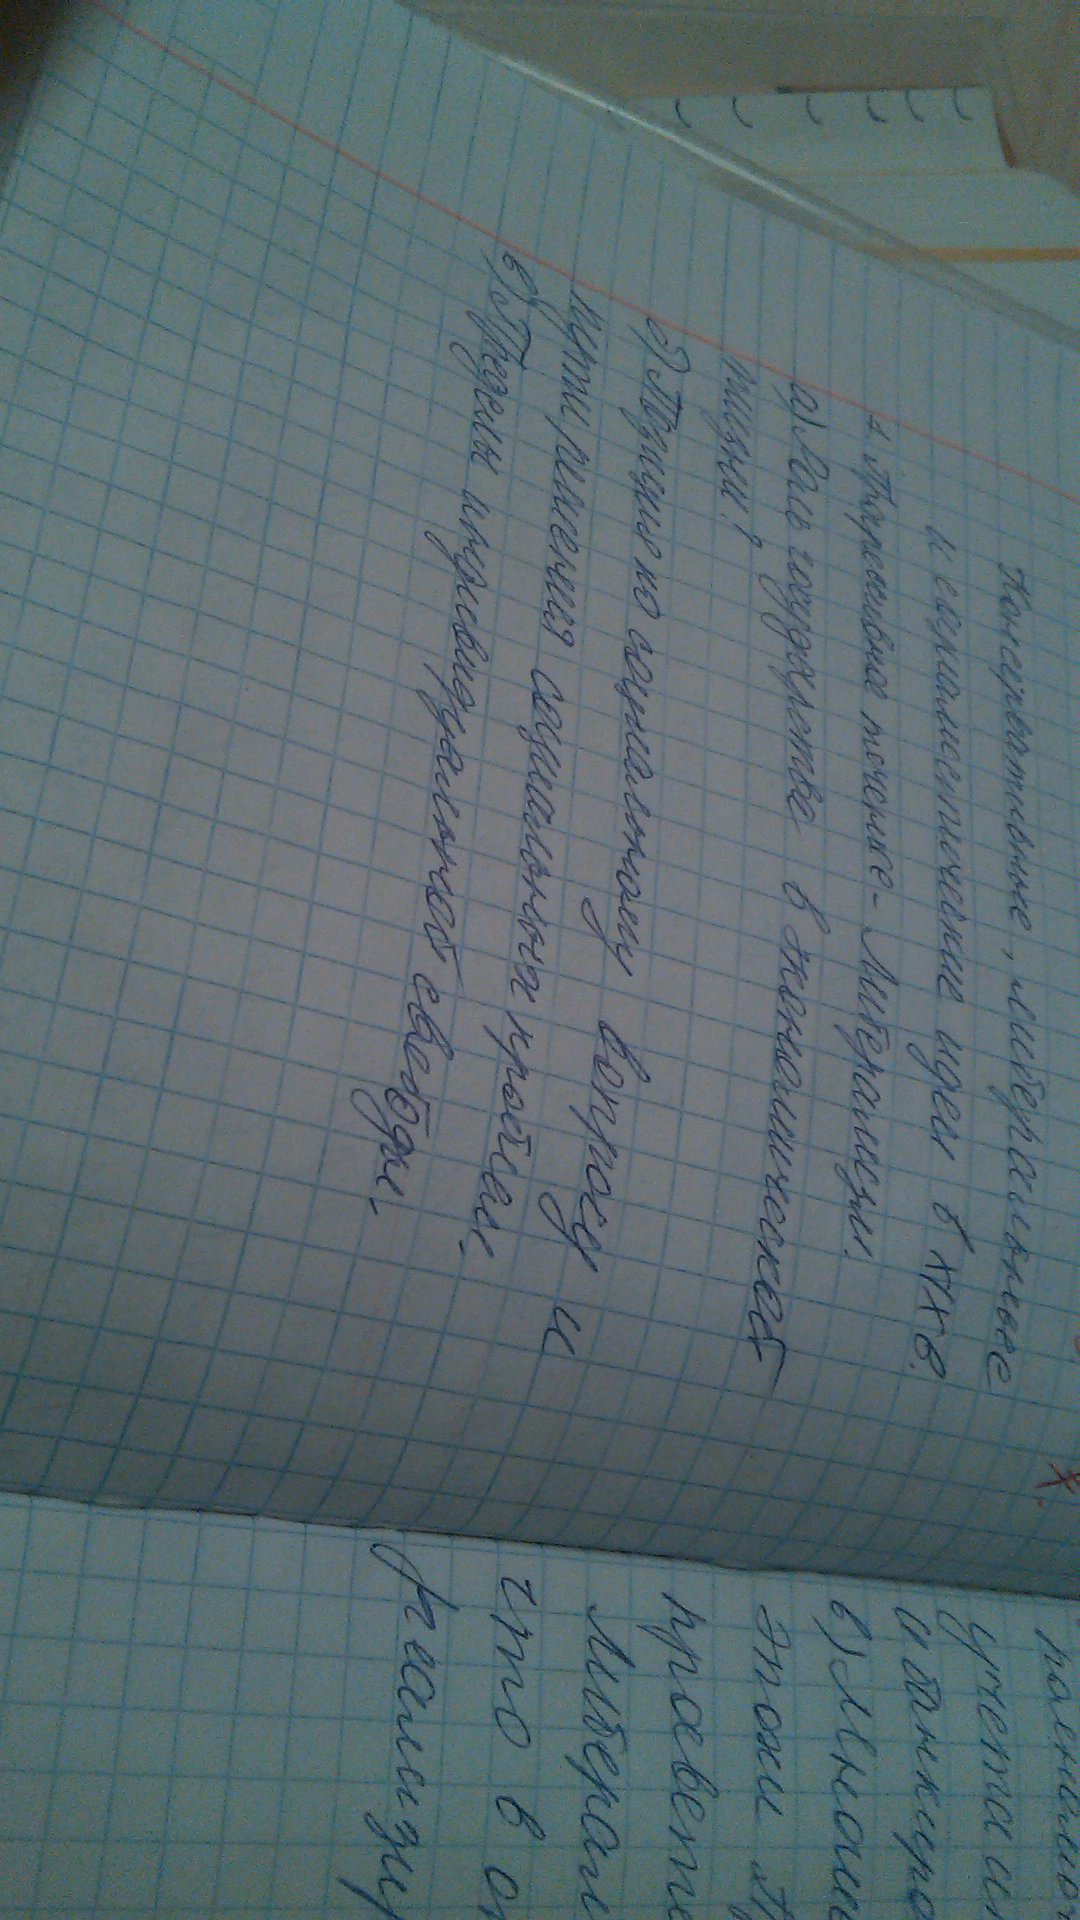 Консервативные, либеральные
и социалистические идеи в XIX в.
1 Протививное течение - Либерализм.
а) Роль государства в экономической
жизни?
б) Позиция по социальному вопросу и
пути решения социальных проблем.
в) Пределы индивидуальной свободы.
учета и
и банкро
в)
этом
правите
Либерал
что в о
реализу